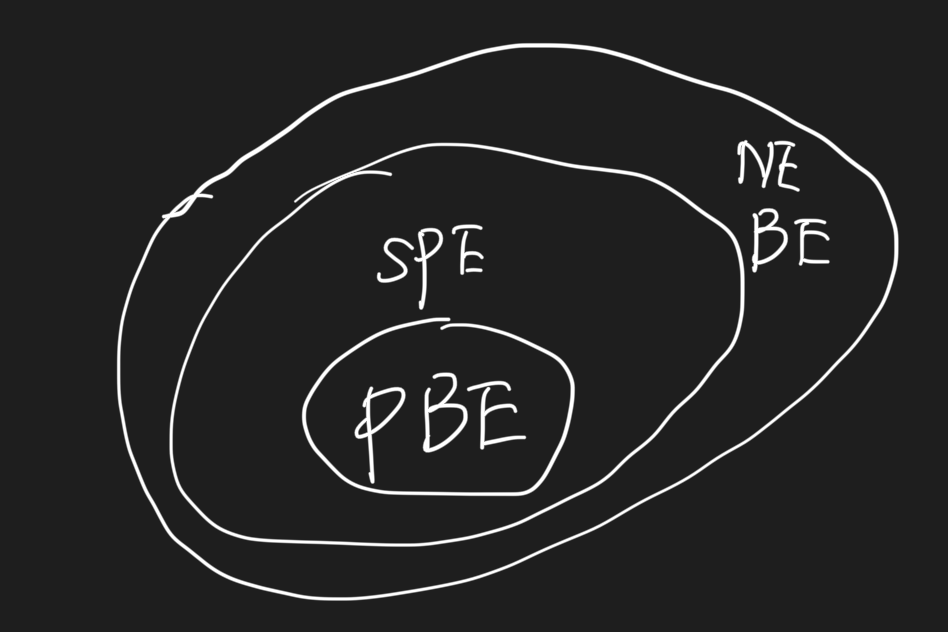 NE
BE
SPE
PBE